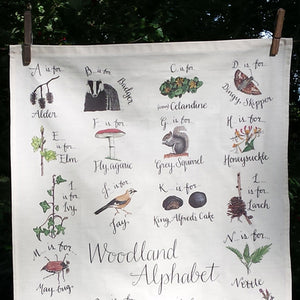 A is for... B is for... C is for... D is for...
Alder Badger (lesser) Celandine Dingy Skipper
E is for... F is for... G is for... H is for...
Elm Fly agaric Grey Squirrel Honeysuckle
I is for... J is for... K is for... L is for...
Ivy Jay King Alfred's Cake Larch
M is for... Woodland N is for...
May-bug Alphabet Nettle